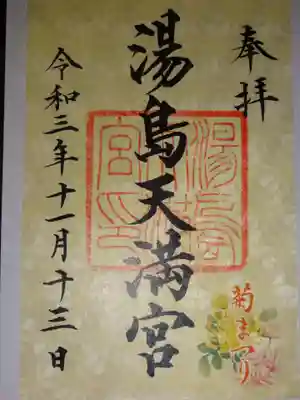 奉拝
湯島天満宮
菊まつり
令和三年十一月十三日